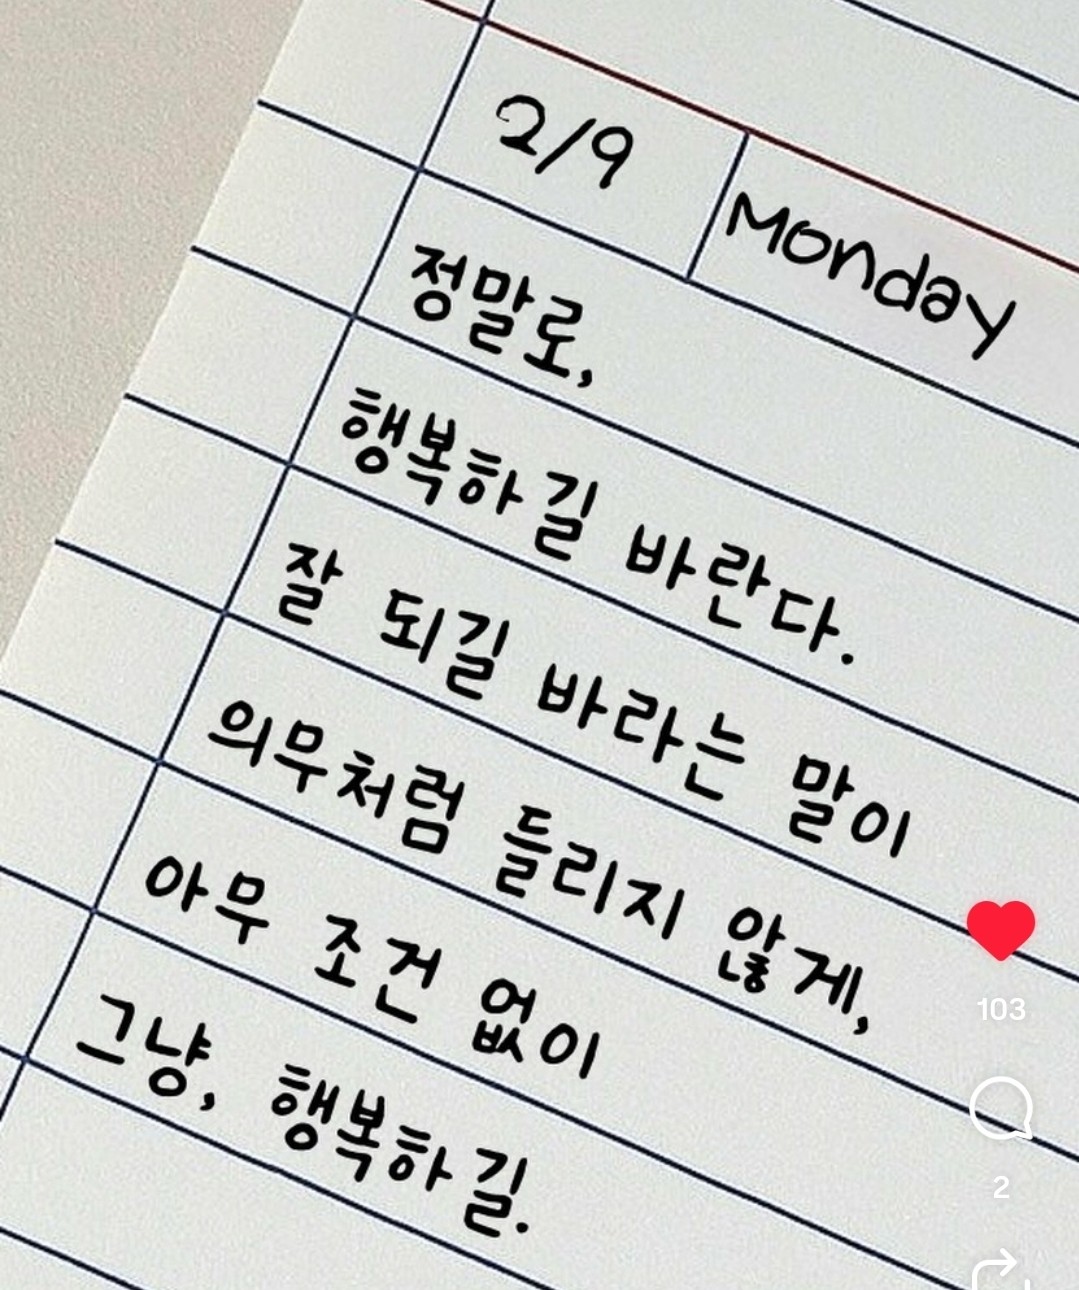 2/9 Monday
정말로,
행복하길 바란다.
잘 되길 바라는 말이
의무처럼 들리지 않게,
아무 조건 없이
그냥, 행복하길.
103
2